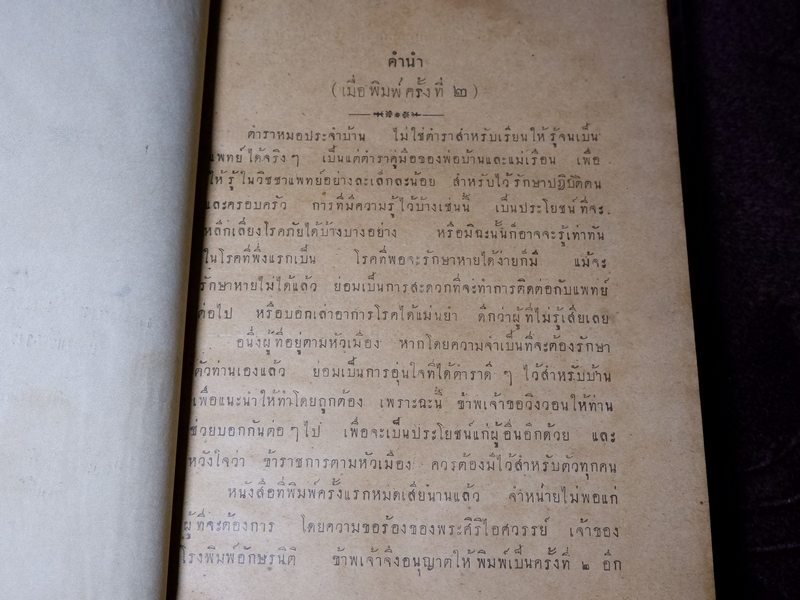 คำนำ
(เมื่อพิมพ์ครั้งที่ ๒)
ตำราหมอประจำบ้าน ไม่ใช่ตำราสำหรับเรียนให้รู้จนเป็น
แพทย์ได้จริงๆ เป็นแต่ตำราคู่มือของพ่อบ้านและแม่เรือน เพื่อ
ให้รู้ในวิชชาแพทย์อย่างละเล็กละน้อย สำหรับไว้รักษาปฏิบัติตน
และครอบครัว การที่มีความรู้ไว้บ้างเช่นนี้ เป็นประโยชน์ที่จะ
หลีกเลี่ยงโรคภัยได้บ้างบางอย่าง หรือมิฉะนั้นก็อาจจะรู้เท่าทัน
ในโรคที่พึ่งแรกเป็น โรคที่พอจะรักษาหายได้ง่ายก็มี แม้จะ
รักษาหายไม่ได้แล้ว ย่อมเป็นการสะดวกที่จะทำการติดต่อกับแพทย์
ต่อไป หรือบอกเล่าอาการโรคได้แม่นยำ ดีกว่าผู้ที่ไม่รู้เสียเลย
อนึ่งผู้ที่อยู่ตามหัวเมือง หากโดยความจำเป็นที่จะต้องรักษา
ตัวท่านเองแล้ว ย่อมเป็นการอุ่นใจที่ได้ตำราดี ๆ ไว้สำหรับบ้าน
เพื่อแนะนำให้ทำโดยถูกต้อง เพราะฉะนี้ ข้าพเจ้าขอวิงวอนให้ท่าน
ช่วยบอกกันต่อๆไป เพื่อจะเป็นประโยชน์แก่ผู้อื่นอีกด้วย และ
หวังใจว่า ข้าราชการตามหัวเมือง ควรต้องมีไว้สำหรับตัวทุกคน
หนังสือที่พิมพ์ครั้งแรกหมดเสียนานแล้ว จำหน่ายไม่พอแก่
ผู้ที่จะต้องการ โดยความขอร้องของพระศิริไอศวรรย์ เจ้าของ
โรงพิมพ์อักษรนิติ ข้าพเจ้าจึงอนุญาตให้พิมพ์เป็นครั้งที่ ๒ อีก